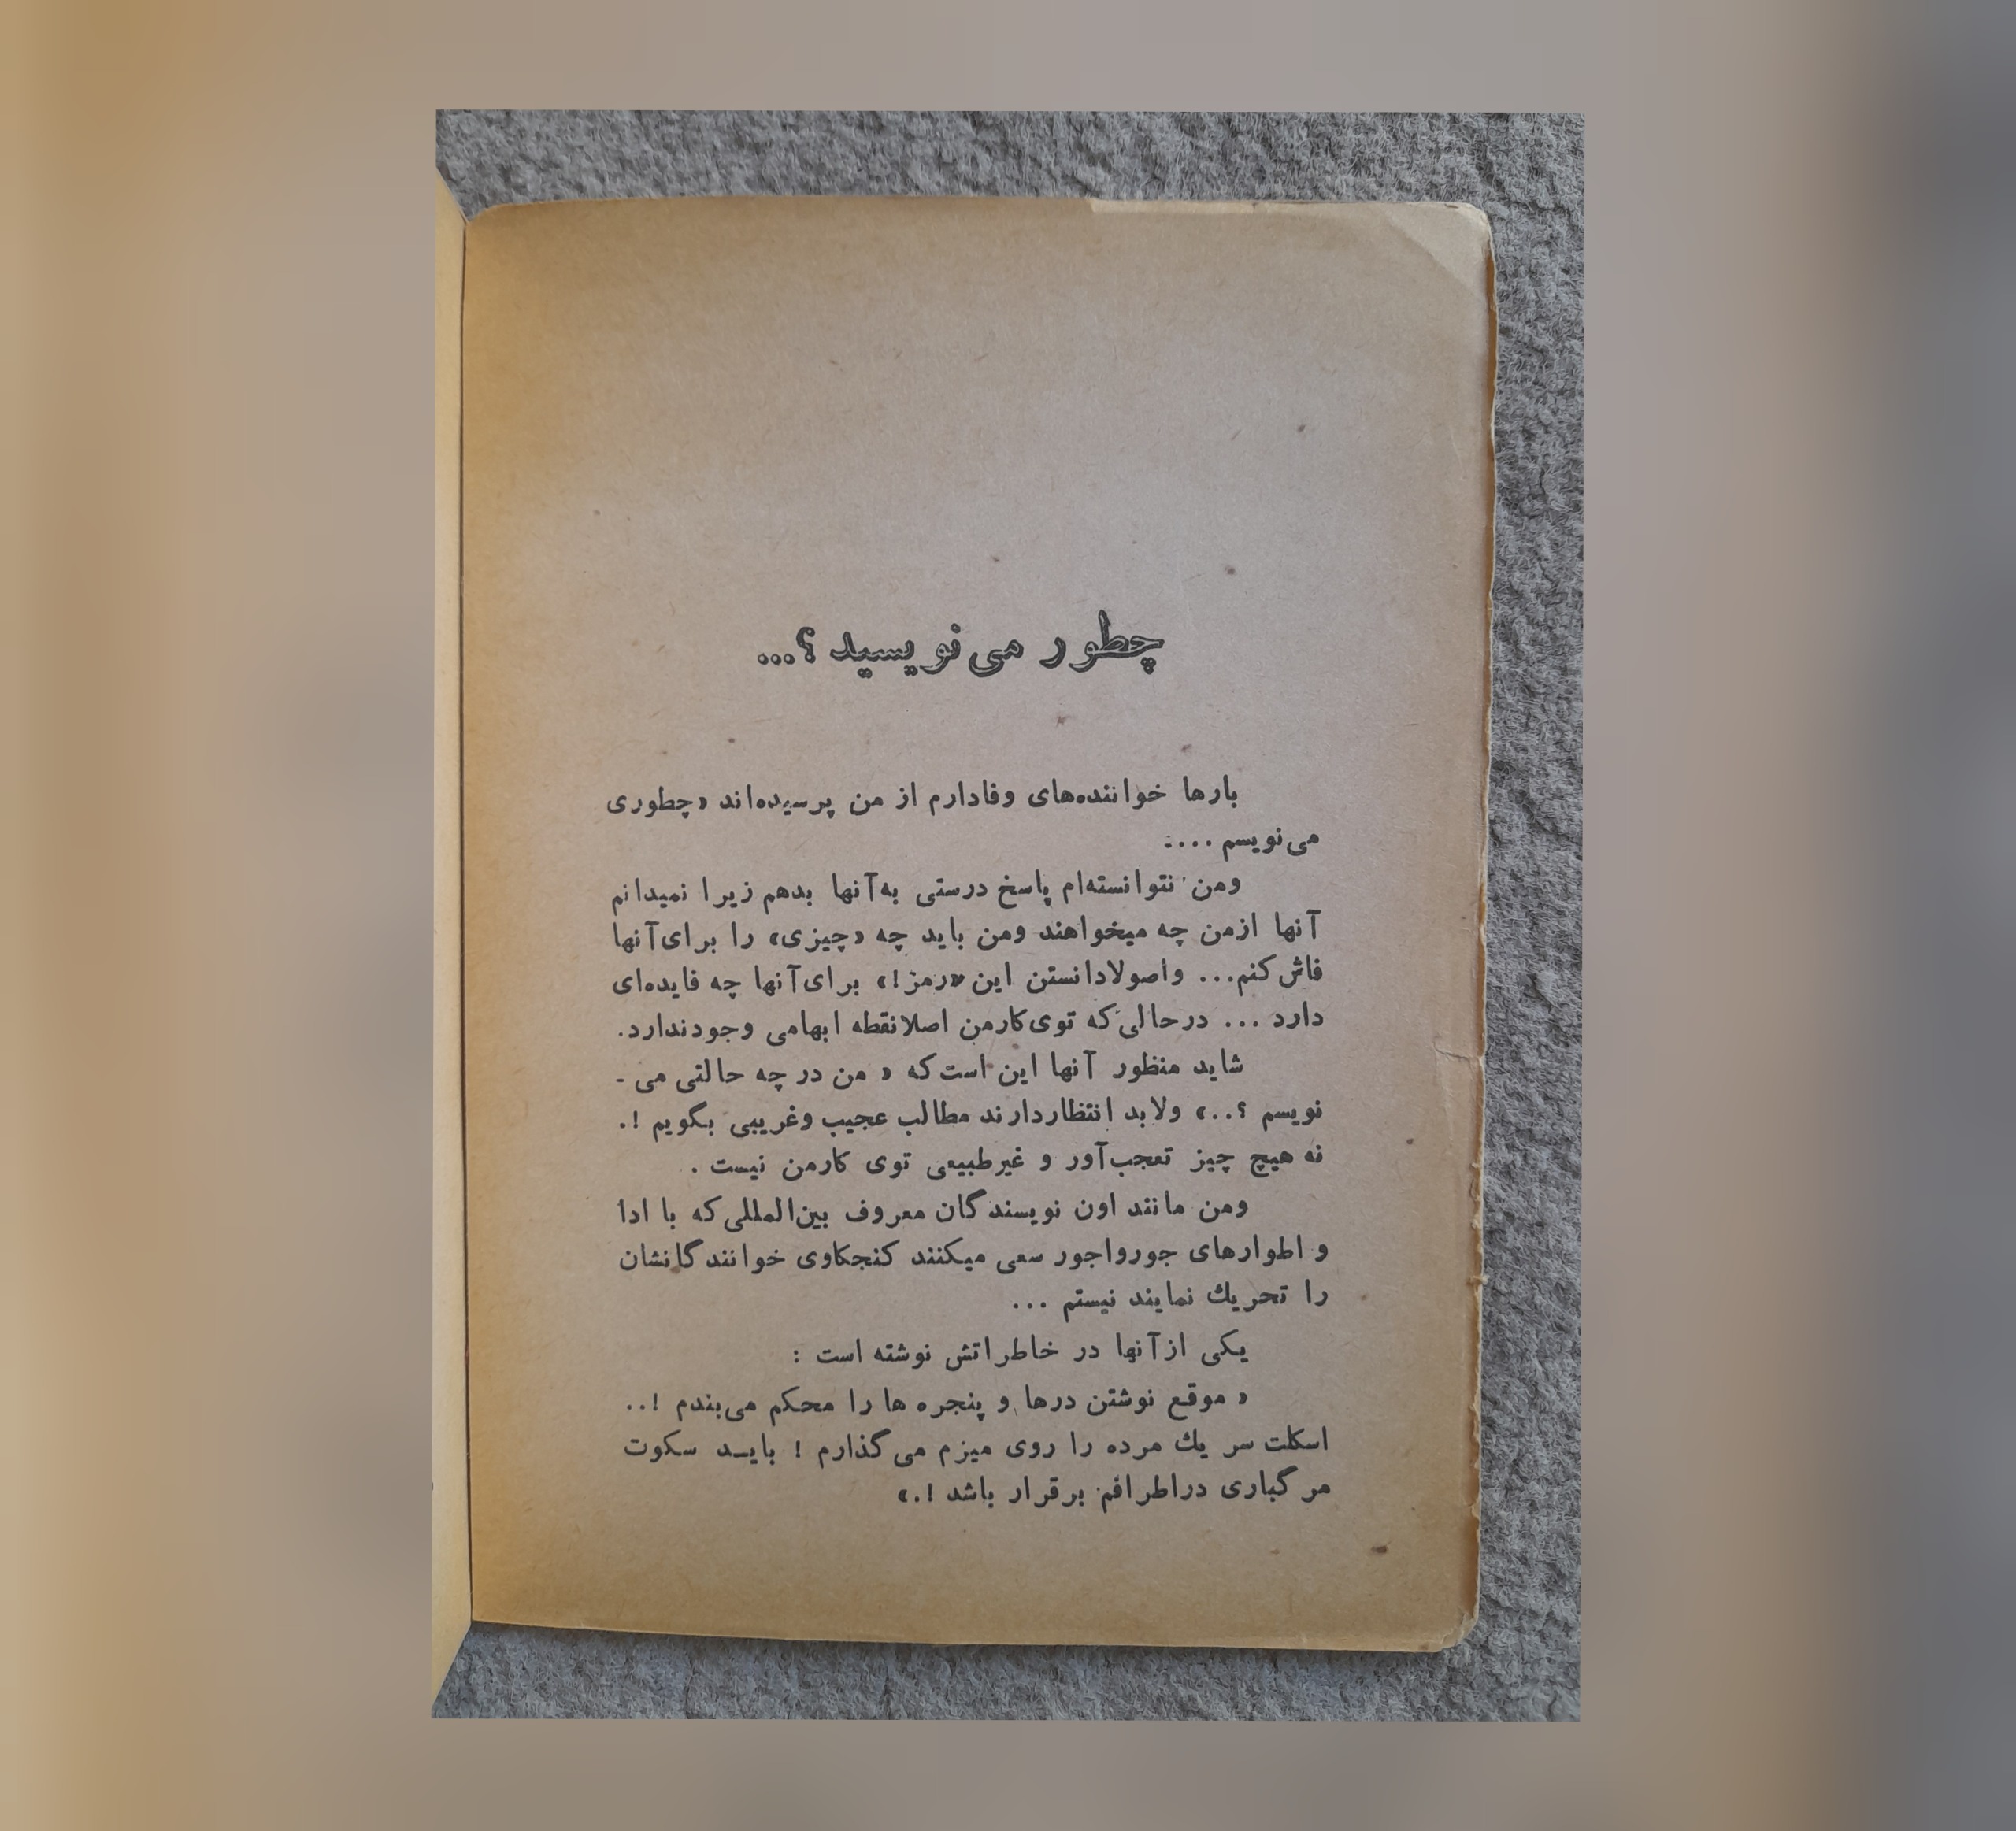 چطور می‌نویسید ؟...
بارها خواننده‌های وفادارم از من پرسیده‌اند «چطوری
می‌نویسم ....
ومن نتوانسته‌ام پاسخ درستی به‌آنها بدهم زیرا نمیدانم
آنها ازمن چه میخواهند ومن باید چه «چیزی» را برای‌آنها
فاش‌کنم... واصولادانستن این «رمز!» برای‌آنها چه فایده‌ای
دارد ... درحالی‌که توی‌کارمن اصلانقطه ابهامی وجودندارد.
شاید منظور آنها این است‌که « من در چه حالتی می -
نویسم ؟..» ولابد انتظاردارند مطالب عجیب وغریبی بگویم !.
نه هیچ چیز تعجب‌آور و غیرطبیعی توی کارمن نیست .
ومن مانند اون نویسندگان معروف بین‌المللی‌که با ادا
و اطوارهای جورواجور سعی میکنند کنجکاوی خوانندگانشان
را تحریك نمایند نیستم ...
یکی ازآنها در خاطراتش نوشته است :
« موقع نوشتن درها و پنجره ها را محکم می‌بندم !..
اسکلت سر یك مرده را روی میزم می‌گذارم ! بایـد سکوت
مرگباری دراطرافم برقرار باشد !.»